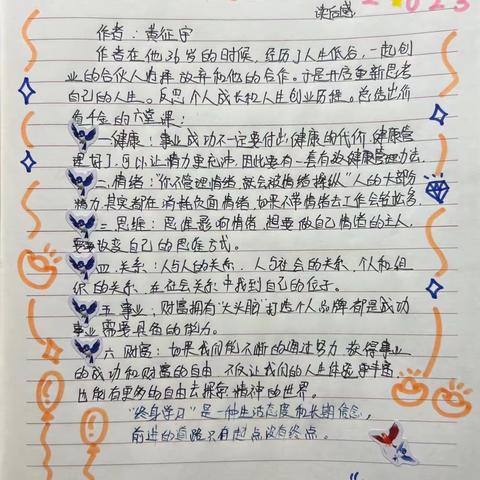 读后感
2023
作者：黄征宇
作者在他36岁的时候，经历了人生低谷，一起创
业的合伙人选择放弃和他的合作。于是开启重新思考
自己的人生。反思个人成长和人生创业历程。总结出价
值千金的六堂课：
一.健康：事业成功不一定要付出健康的代价，健康管
理好了，可以让精力更充沛，因此要有一套有效健康管理方法。
二.情绪："你不管理情绪，就会被情绪操纵"人的大部分
精力，其实都在消耗负面情绪，如果不带情绪去工作会轻松多
三.思维：思维影响情绪，想要做自己情绪的主人，
需要改变自己的思维方式。
四.关系：人与人的关系，人与社会的关系，个人和组
织的关系，在社会关系中找到自己的位子。
五.事业：财富拥有"大头脑"打造个人品牌都是成功
事业需要具备的能力。
六.财富：如果我们能不断的通过努力，获得事业
的成功和财富的自由，不仅让我们的人生体验更丰富
有更多的自由去探索精神的世界。
"终身学习"是一种生活态度和长期信念，
前进的道路只有起点没有终点。